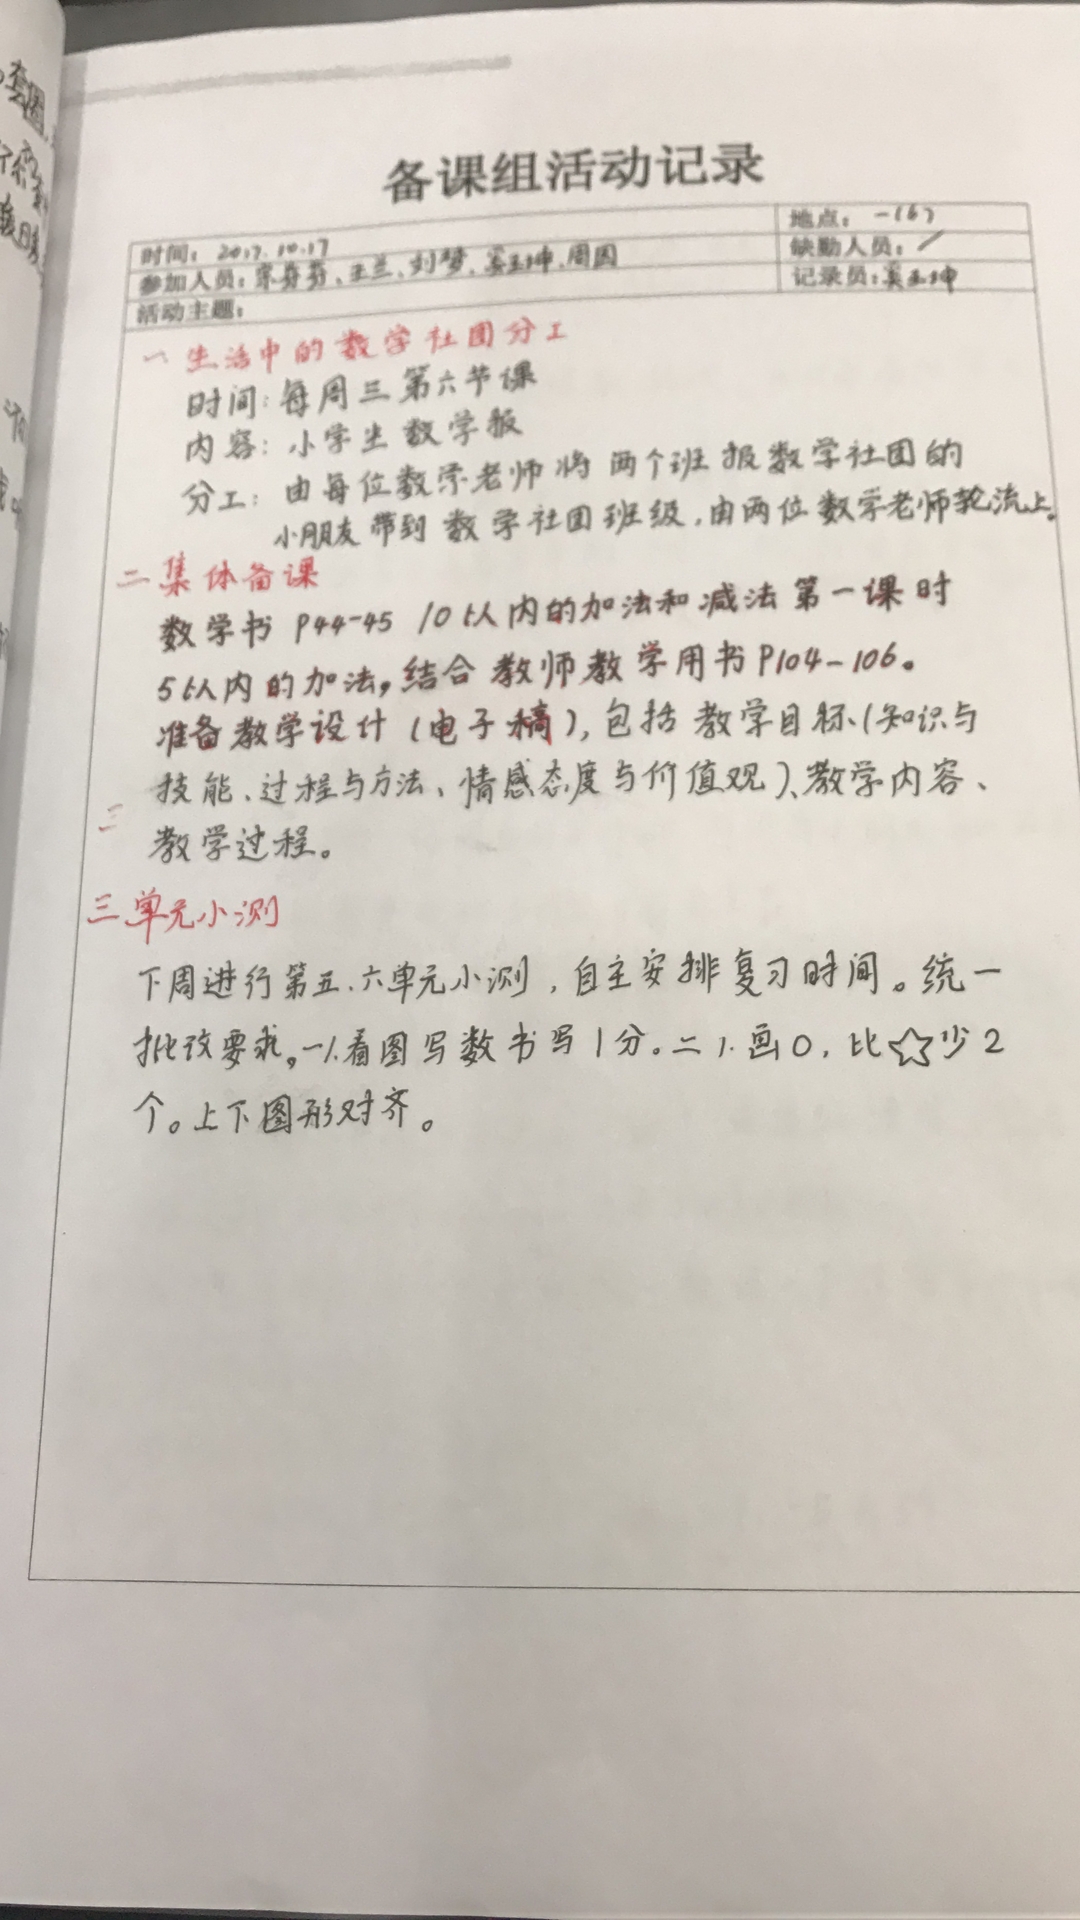 备课组活动记录
时间：2017.10.17
地点：一(6)
参加人员：宗芬芬、王兰、刘梦、奚玉坤、周园
缺勤人员：/
记录员：奚玉坤
活动主题：
一 生活中的数学社团分工
时间：每周三第六节课
内容：小学生数学报
分工：由每位数学老师将两个班报数学社团的
小朋友带到数学社团班级，由两位数学老师轮流上。
二 集体备课
数学书 P44-45 10以内的加法和减法第一课时
5以内的加法，结合教师教学用书P104-106。
准备教学设计（电子稿），包括教学目标（知识与
技能、过程与方法、情感态度与价值观）、教学内容、
三
教学过程。
三 单元小测
下周进行第五、六单元小测，自主安排复习时间。统一
批改要求。一1.看图写数书写1分。二1.画O，比☆少2
个。上下图形对齐。